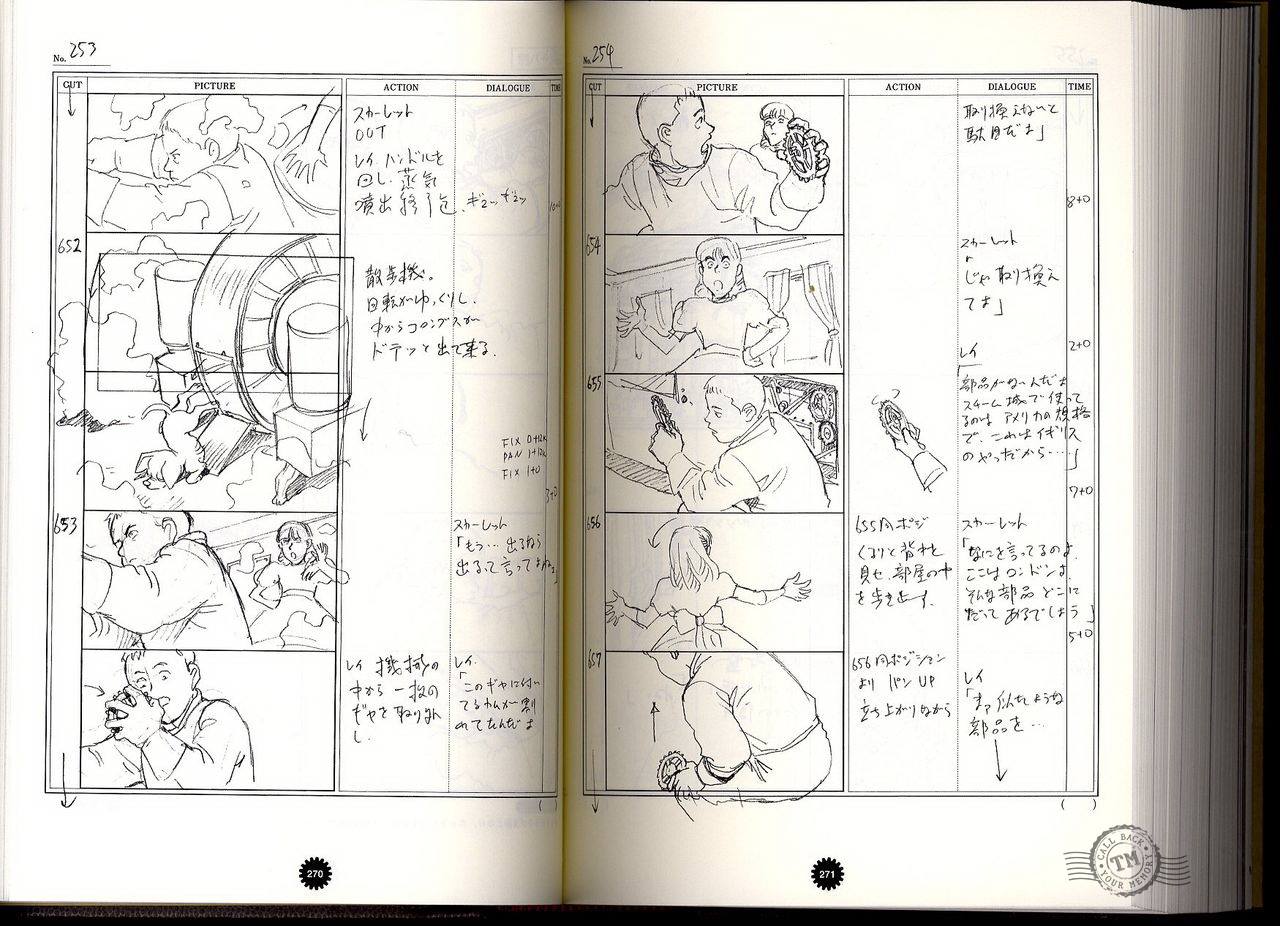 No. 253
CUT PICTURE ACTION DIALOGUE TIME
スカーレット
OUT
レイ、ハンドルを
回し、蒸気
噴出終了迄、ギュッギュッ
652
散歩機。
回転がゆっくりし、
中からコロンブスが
ドテッと出て来る。
FIX 0+12K
PAN 1+12K
FIX 1+0
3+0
653
スカーレット
「もう… 出るなら
出るって言ってよね。」
レイ 機械の
中から一枚の
ギヤを取り出
し
レイ
「このギヤに付い
てるカムが割
れてたんだよ
270
No. 254
CUT PICTURE ACTION DIALOGUE TIME
取り換えないと
駄目だよ」
8+0
654
スカーレット
「
じゃ取り換え
てよ」
2+0
655
レイ
部品がないんだよ
スチーム城で使って
るのは アメリカの規格
で、これはイギリス
のやつだから……」
7+0
656
655同ポジ
くるりと背中を
見せ、部屋の中
を歩き出す。
スカーレット
「なにを言ってるのよ
ここはロンドンよ
そんな部品 どこに
だって あるでしょう」
5+0
657
656同ポジション
より パンUP
立ち上がりながら
レイ
「まァ似たような
部品を…
( )
( )
271
CALL BACK
TM
YOUR MEMORY